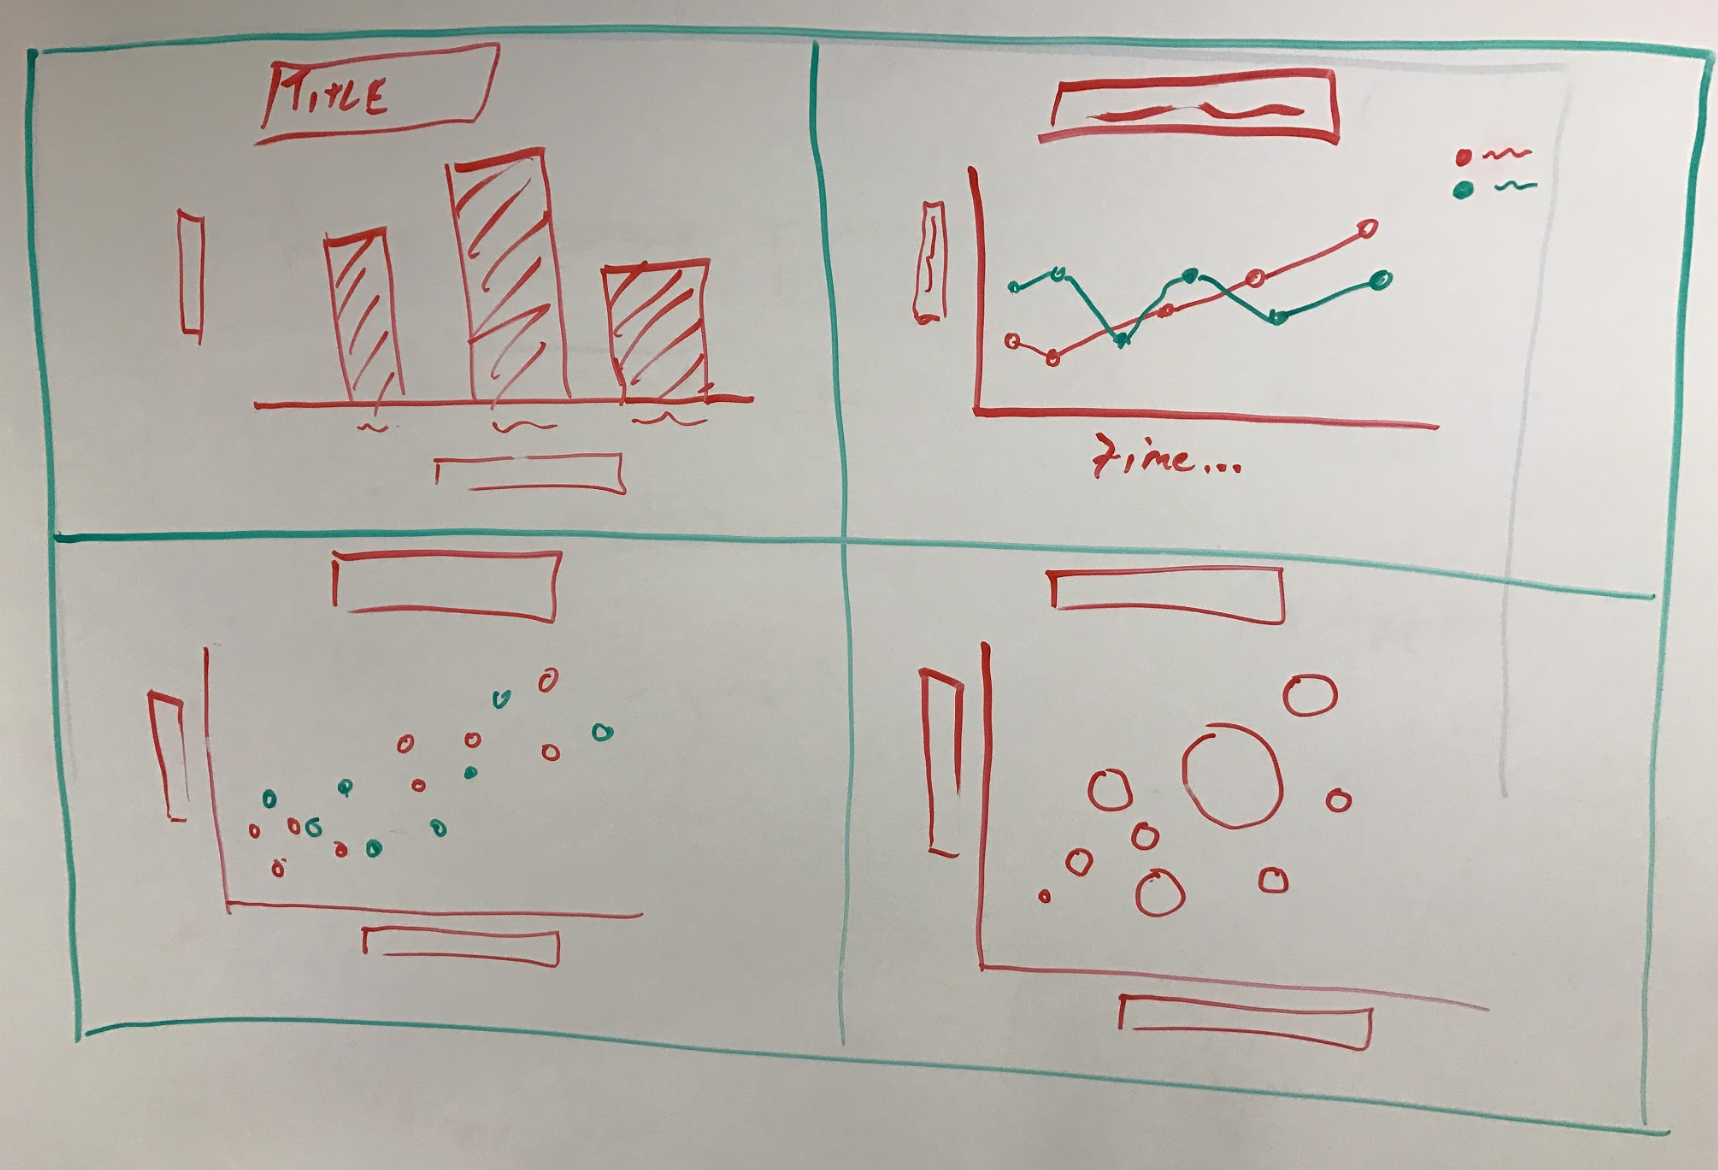 TITLE
Time...